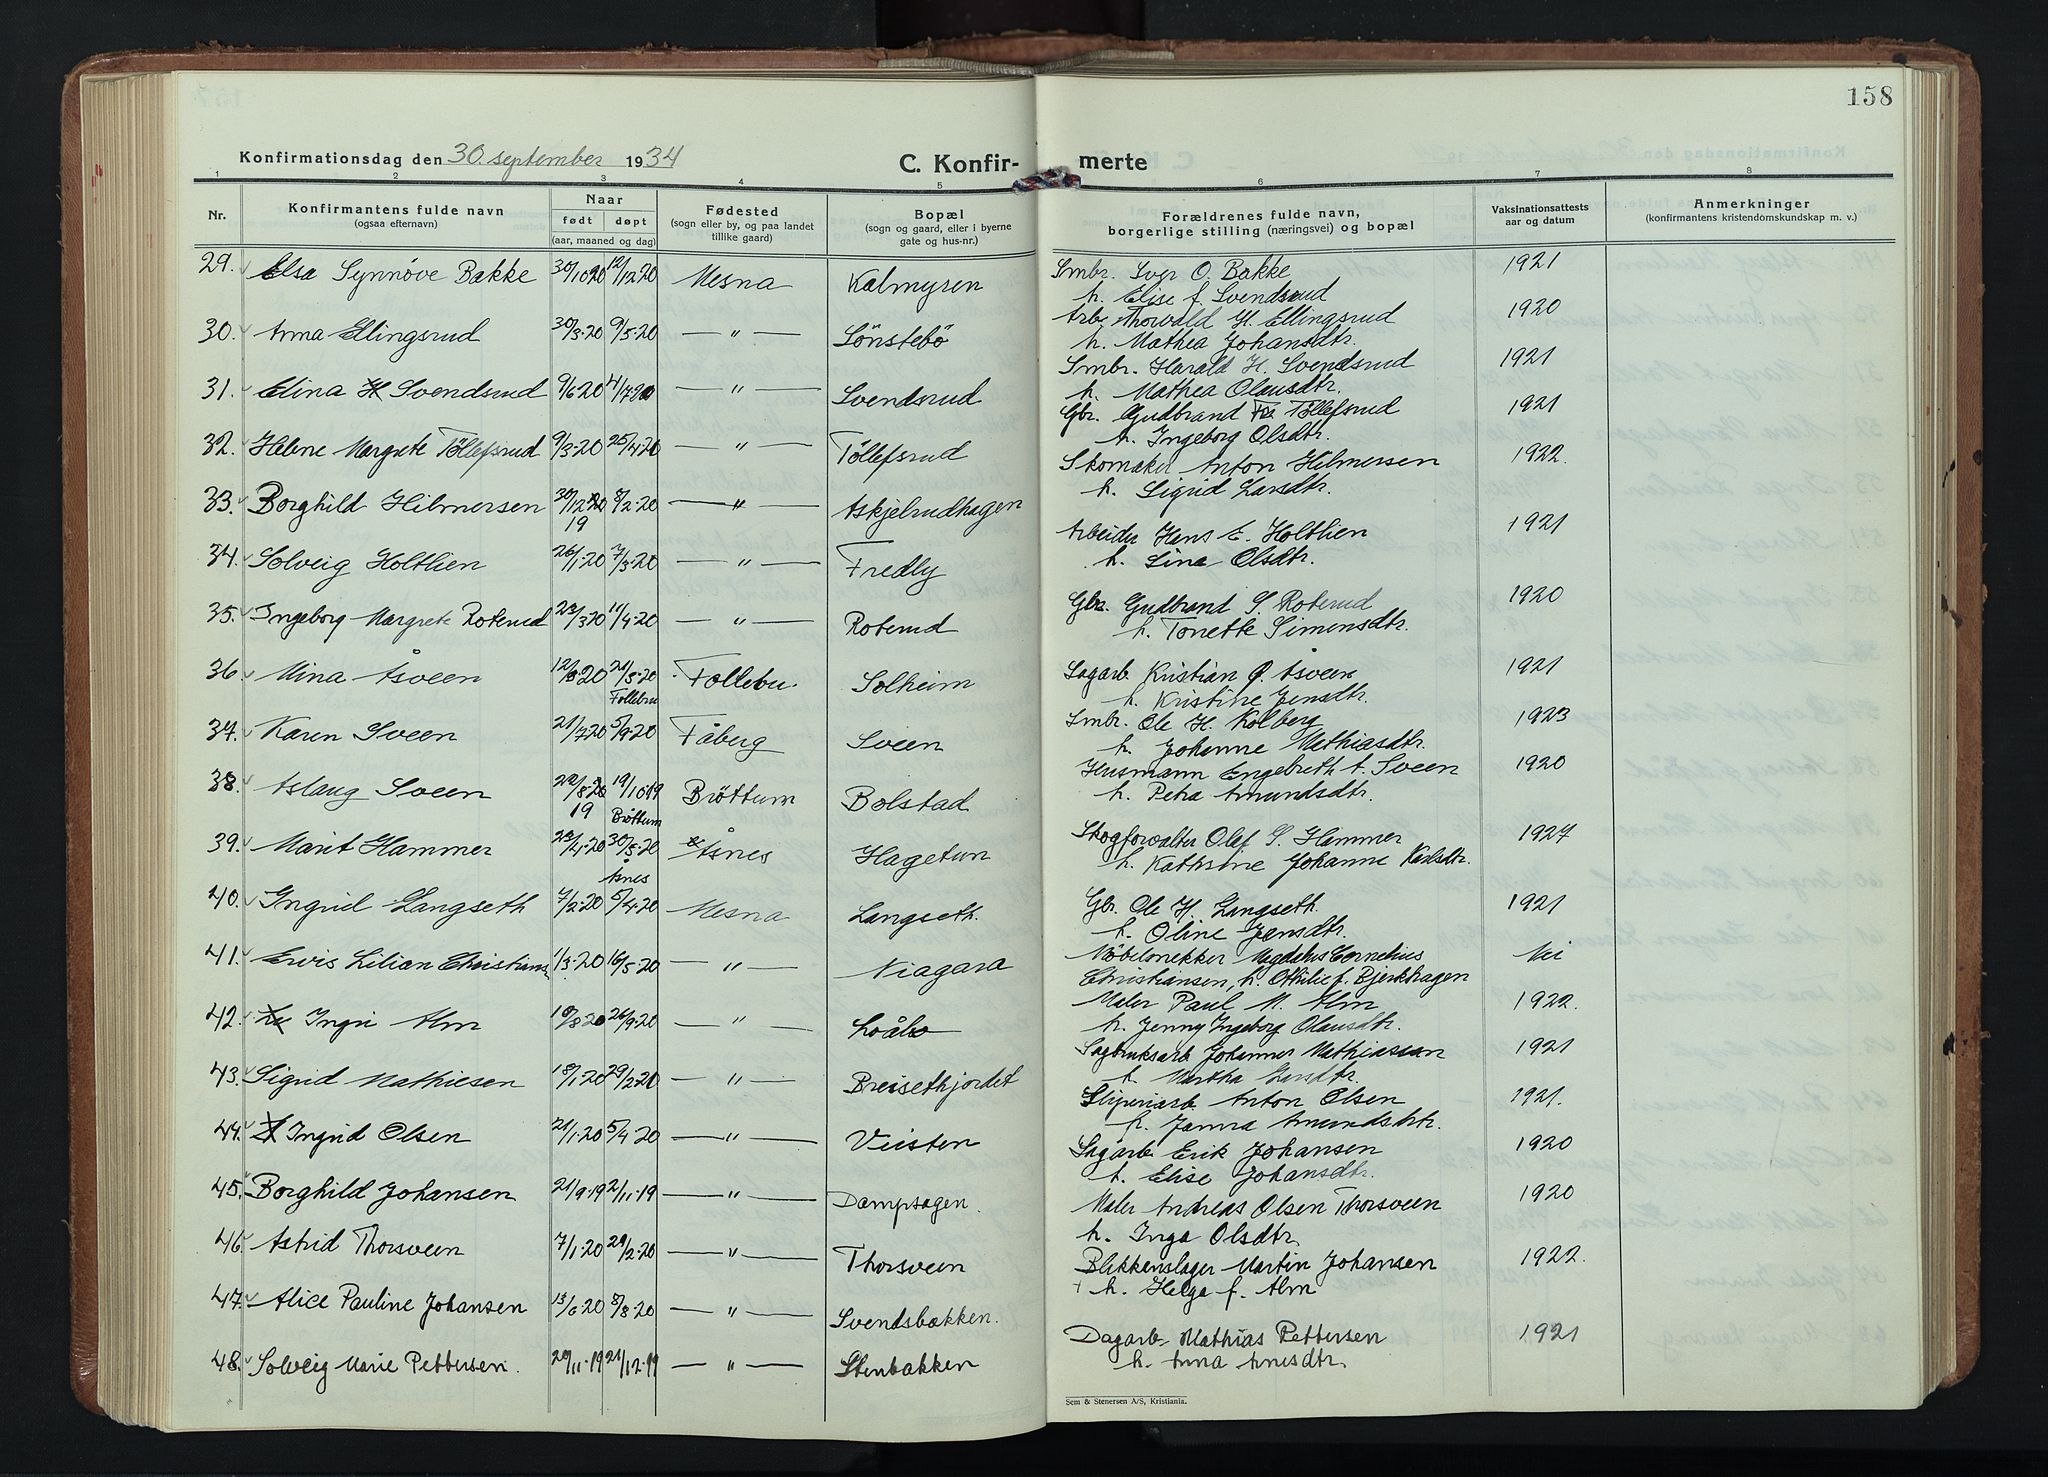 158
Konfirmationsdag den 30. september 1934
C. Konfir- merte
1 2 3 4 5 6 7 8
Nr. Konfirmantens fulde navn (ogsaa efternavn) Naar født døpt (aar, maaned og dag) Fødested (sogn eller by, og paa landet tillike gaard) Bopæl (sogn og gaard, eller i byerne gate og hus-nr.) Forældrenes fulde navn, borgerlige stilling (næringsvei) og bopæl Vaksinationsattests aar og datum Anmerkninger (konfirmantens kristendomskundskap m. v.)
29. Elsa Synnøve Bakke 30/10 20 12/12 20 Mesna Kalmyren Smbr. Iver O. Bakke 1921
h. Elise f. Svendsrud
30. Anna Ellingsrud 30/3·20 9/5·20 — " — Sönstebö Arb. Thorvald H. Ellingsrud 1920
h. Mathea Johansdtr.
31. Elina Svendsrud 9/6 20 4/7 20 — " — Svendsrud Smbr. Harald H. Svendsrud 1921
h. Mathea Olausdtr.
32. Helene Margrete Töllefsrud 9/3·20 25/4·20 — " — Töllefsrud Gbr. Gudbrand Töllefsrud 1921
h. Ingeborg Olsdtr.
33. Borghild Hilmersen 30/12 19 8/2·20 — " — Askjelrudhagen Skomaker Anton Hilmersen 1922.
h. Sigrid Larsdtr.
34. Solveig Holtlien 26/1·20 7/3·20 — " — Fredly Arbeider Hans E. Holtlien 1921
h. Lina Olsdtr.
35. Ingeborg Margrete Roterud 23/3 20 11/4·20 — " — Roterud Gbr. Gudbrand S. Roterud 1920
h. Tonette Simensdtr.
36. Mina Åsveen 12/3 20 21/5·20 Follebu Follebu Solheim Sagarb. Kristian O. Åsveen 1921
h. Kristine Jensdtr.
37. Karen Sveen 21/7 20 5/9·20 Fåberg Sveen Smbr. Ole H. Kolberg 1923
h. Johanne Mathiasdtr.
38. Aslaug Sveen 22/8 19 19/10 19 Bröttum Bröttum Bolstad Husmann Engebreth A. Sveen 1920
h. Petra Amundsdtr.
39. Marit Hammer 29/4·20 30/5·20 Åsnes Åsnes Hagetun Skogforvalter Olaf S. Hammer 1927
h. Kathrine Johanne Karlsdtr.
40. Ingrid Langseth 7/2·20 5/4·20 Mesna Langseth. Gbr. Ole H. Langseth. 1921
h. Oline Jensdtr.
41. Ervis Lilian Christians. 1/3·20 16/5·20 — " — Niagara Möbelsnekker Magdalus Cornelius Nei
Christiansen, h. Othilie f. Bjerkhagen
42. Ingri Alm 18/8 20 26/9·20 — " — Loåbo Maler Paul M. Alm 1922.
h. Jenny Ingeborg Olausdtr.
43. Sigrid Mathiesen 18/1·20 29/2·20 — " — Breisethjordet Sagbruksarb. Johannes Mathiassen 1921
h. Martha Larsdtr.
44. Ingrid Olsen 21/1·20 5/4 20 — " — Veisten Sliperiarb. Anton Olsen 1921.
h. Janna Amundsdtr.
45. Borghild Johansen 21/9·19 2/11·19 — " — Dampsagen. Sagarb. Erik Johansen 1920
h. Elise Johansdtr.
46. Astrid Thorsveen 7/1·20 29/2·20 — " — Thorsveen Maler Andreas Olsen Thorsveen 1920
h. Inga Olsdtr.
47. Alice Pauline Johansen 13/6·20 8/8·20 — " — Svendsbakken. Blikkenslager Martin Johansen 1922.
+ h. Helga f. Alm
48. Solveig Marie Pettersen. 20/11·19 21/12·19 — " — Stenbakken Dagarb. Mathias Pettersen 1921
h. Anna Arnesdtr.
Sem & Stenersen A/S, Kristiania.